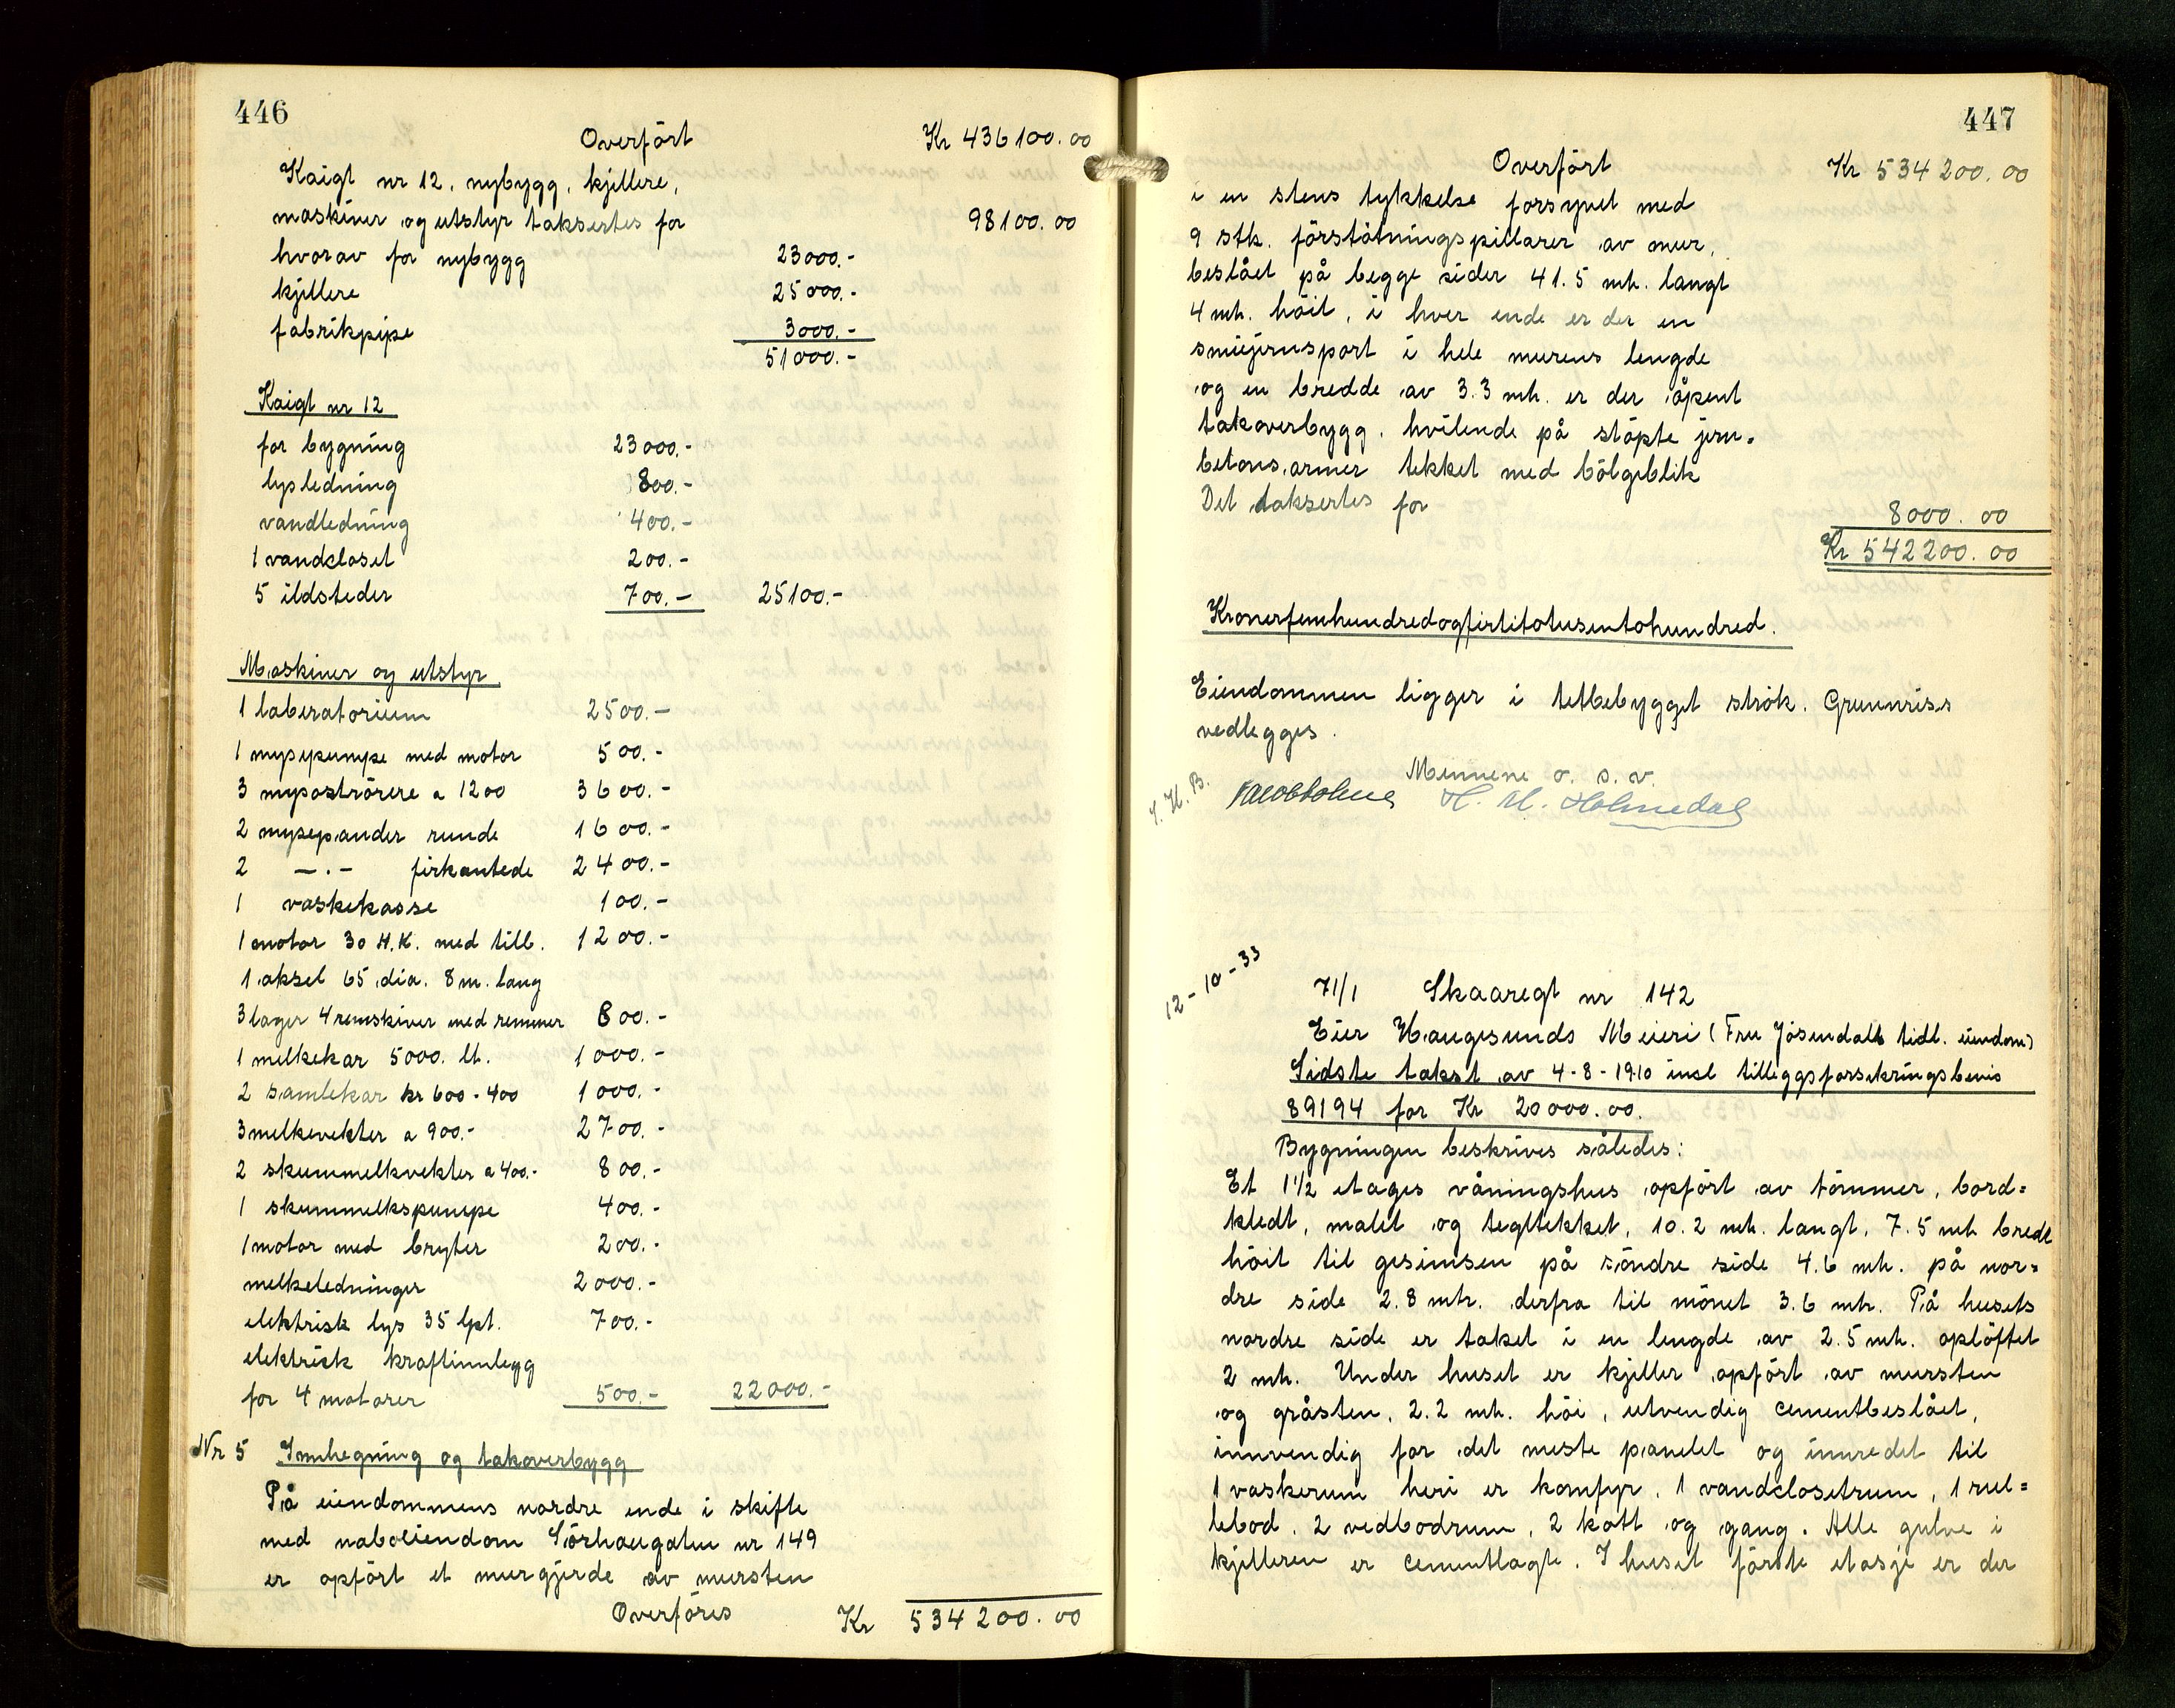 446
Overført Kr 436100.00
Kaigt nr 12, nybygg, kjillere,
maskiner og utstyr taksertes for 98100.00
hvorav for nybygg 23000.-
kjillere 25000.-
fabrikpipe 3000.-
51000.-
Kaigt nr 12
for bygning 23000.-
lysledning 800.-
vandledning 400.-
1 vandcloset 200.-
5 ildsteder 700.- 25100.-
Maskiner og utstyr
1 laberatorium 2500.-
1 mysepumpe med motor 500.-
3 myseoströrere a 1200 3600.-
2 mysepander runde 1600.-
2 -.- firkantede 2400.-
1 vaskekasse 100.-
1 motor 30 H.K. med tilb. 1200.-
1 aksel 65 dia. 8 m. lang
3 lager 4 remskiver med remmer 800.-
1 melkekar 5000 lt. 1000.-
2 samlekar kr 600 - 400 1000.-
3 melkevekter a 900.- 2700.-
2 skummelkvekter a 400.- 800.-
1 skummelkspumpe 400.-
1 motor med bryter 200.-
melkeledninger 2000.-
elektrisk lys 35 lpt. 700.-
elektrisk kraftinnlegg
for 4 motorer 500.- 22000.-
Nr 5 Innhegning og takoverbygg
På eiendommens nordre ende i skifte
med naboeiendom Sörhaugaten nr 149
er opfört et murgjerde av mursten
Overföres Kr 534200.00
447
Overfört Kr 534200.00
i en stens tykkelse forsynet med
9 stk. förstötningspillarer av mur,
beslået på begge sider 41.5 mtr. langt
4 mtr. höit, i hver ende er der en
smiejernsport i hele murens lengde
og en bredde av 3.3 mtr. er der åpent
takoverbygg, hvilende på stöpte jern-
betons armer tekket med bölgeblik
Det taksertes for 8000.00
Kr 542200.00
Kronerfemhundredogfirtitotusentohundred.
Eiendommen ligger i tettbebygget strök. Grunnriss
vedlegges.
Meinene o. s. v.
H. M. Holmedal
12-10-33
71/1 Skaaregt nr 142
Eier Haugesunds Meieri (Fru Jösendals tidl. eiendom)
Sidste takst av 4-8-1910 incl tilleggsforsikringsbevis
89194 for Kr 20000.00.
Bygningen beskrives således:
Et 1 1/2 etages våningshus opfört av tömmer, bord=
kledt, malet og tegltekket, 10.2 mtr. langt, 7.5 mtr bredt
höit til gesimsen på söndre side 4.6 mtr. på nor=
dre side 2.8 mtr. derfra til mönet 3.6 mtr. På husets
nordre side er taket i en lengde av 2.5 mtr. oplöftet
2 mtr. Under huset er kjiller opfört av mursten
og gråsten, 2.2 mtr. höi, utvendig cementbeslået,
innvendig for det meste panelet og innredet til
1 vaskerum heri er komfyr, 1 vandclosetrum, 1 rul=
lebod, 2 vedbodrum, 2 kott og gang. Alle gulve i
kjilleren er cementlagte. I huset förste etasje er der